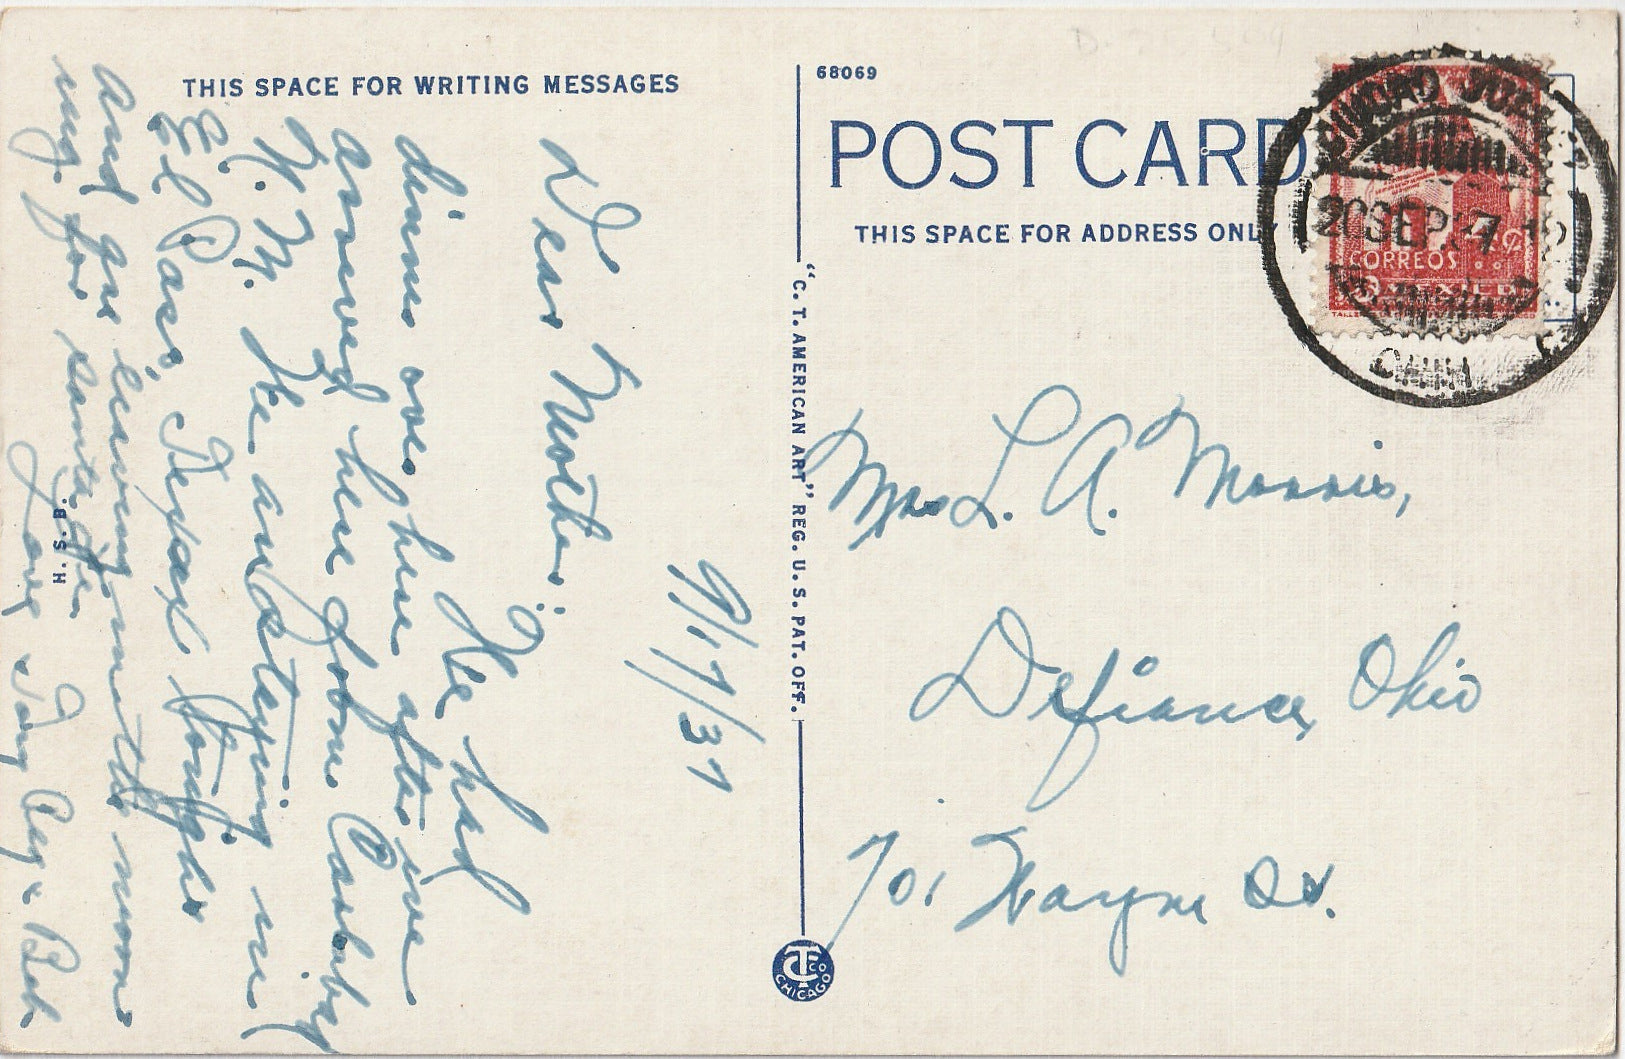 THIS SPACE FOR WRITING MESSAGES
9/17/37
Dear Mother:
We had
dinner over here after we
arrived here from Carlsbad
N. M. We are staying in
El Paso Texas tonight
and are leaving in the morn
ing for Santa Fe.
Love, Tay Aug & Bob
H. S. B.
"C. T. AMERICAN ART" REG. U. S. PAT. OFF.
C T CO CHICAGO
68069
POST CARD
THIS SPACE FOR ADDRESS ONLY
CIUDAD JUAREZ
20 SEP. 37
CHIH
CORREOS
MEXICO
Mrs L. A. Morris,
Defiance, Ohio
701 Wayne St.